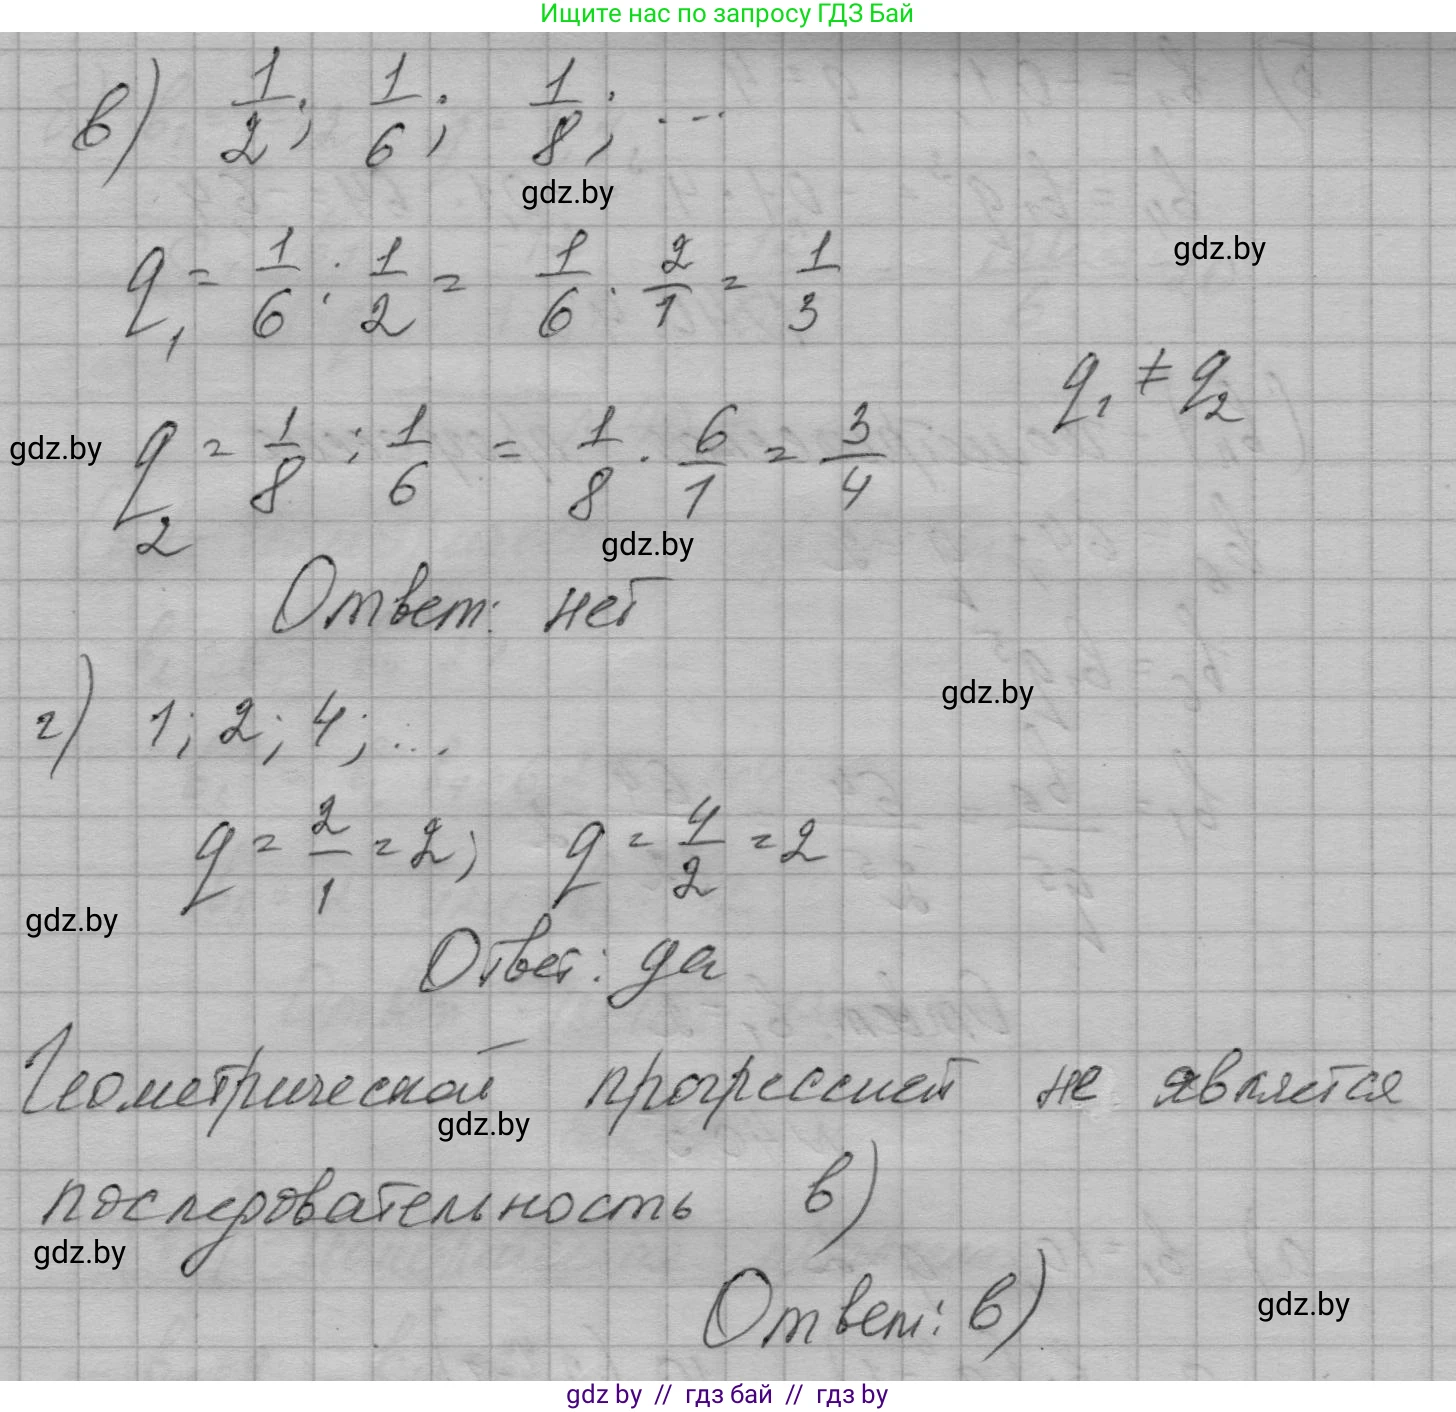 Ищите нас по запросу ГДЗ Бай
в) 1/2; 1/6; 1/8; ...
gdz.by
gdz.by
q₁ = 1/6 : 1/2 = 1/6 · 2/1 = 1/3
q₁ ≠ q₂
gdz.by
q₂ = 1/8 : 1/6 = 1/8 · 6/1 = 3/4
gdz.by
Ответ: нет
gdz.by
г) 1; 2; 4; ...
q = 2/1 = 2; q = 4/2 = 2
gdz.by
Ответ: да
Геометрической прогрессией не является
gdz.by
последовательность в)
gdz.by
Ответ: в)
gdz.by
gdz by // гдз бай // гдз by